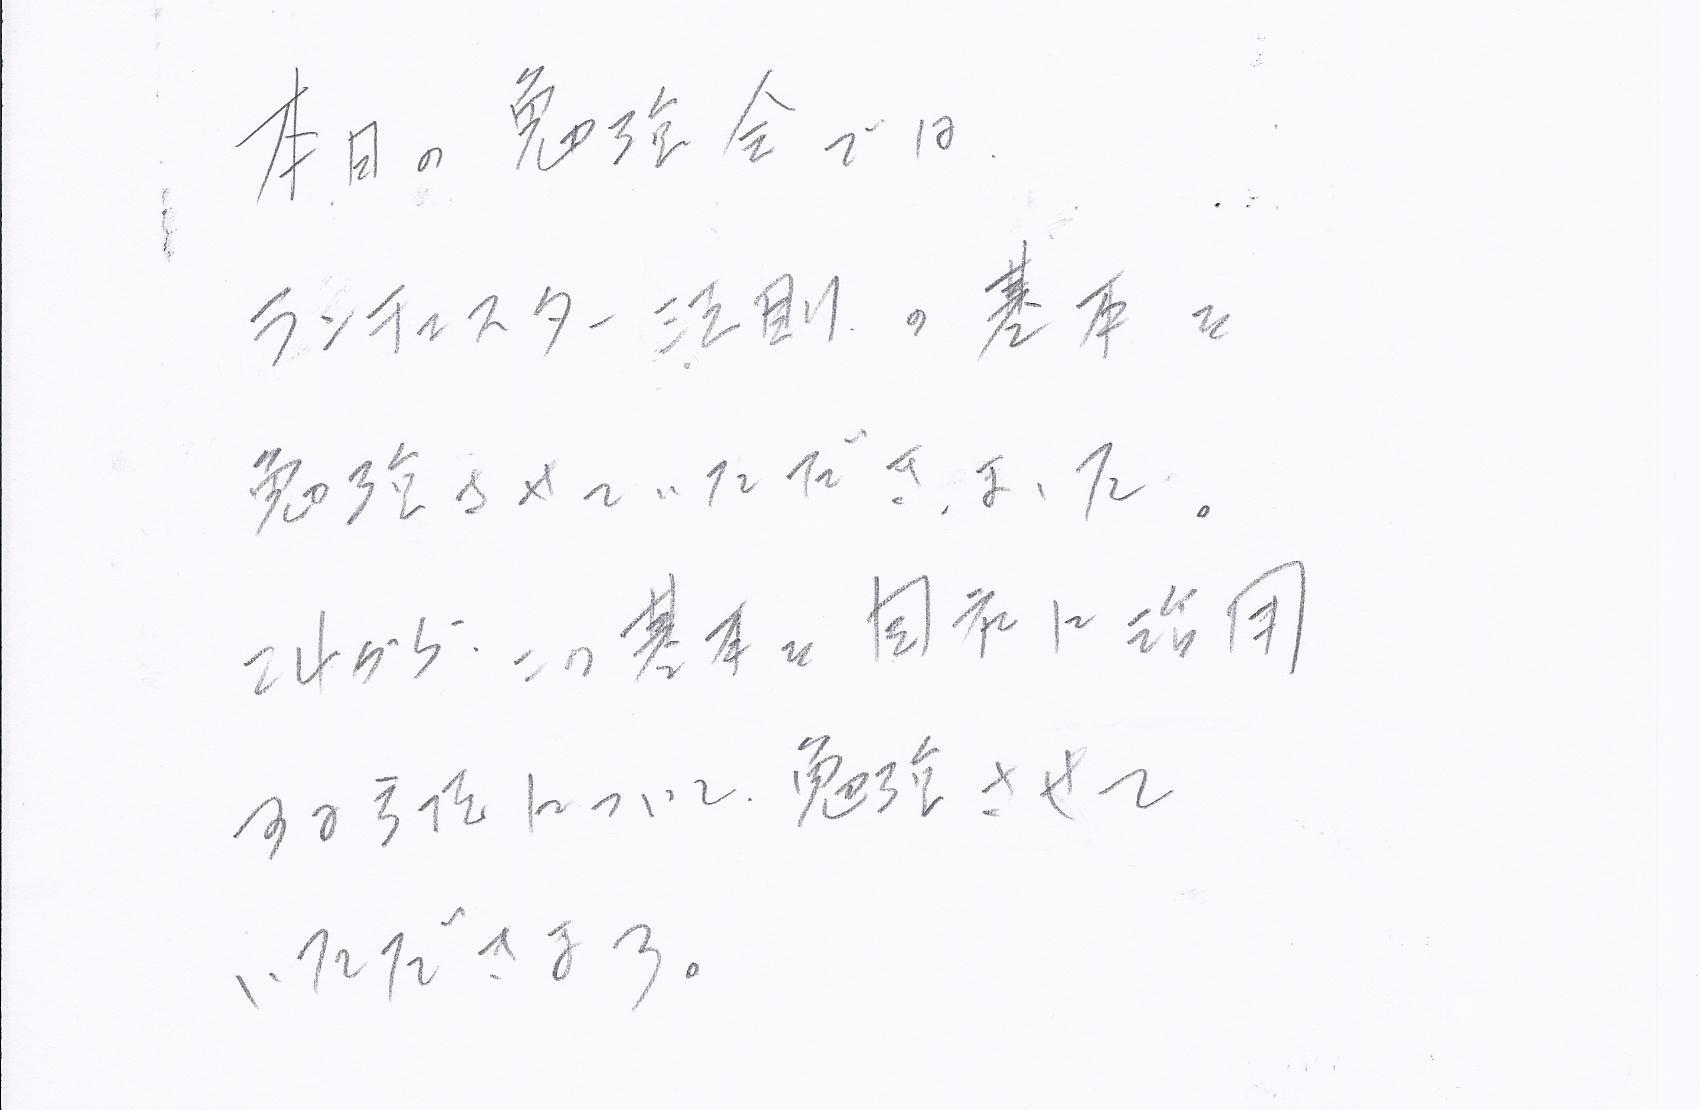 本日の勉強会では、
ランチェスター法則の基本を
勉強させていただきました。
これから、この基本を自社に活用
する方法について、勉強させて
いただきます。